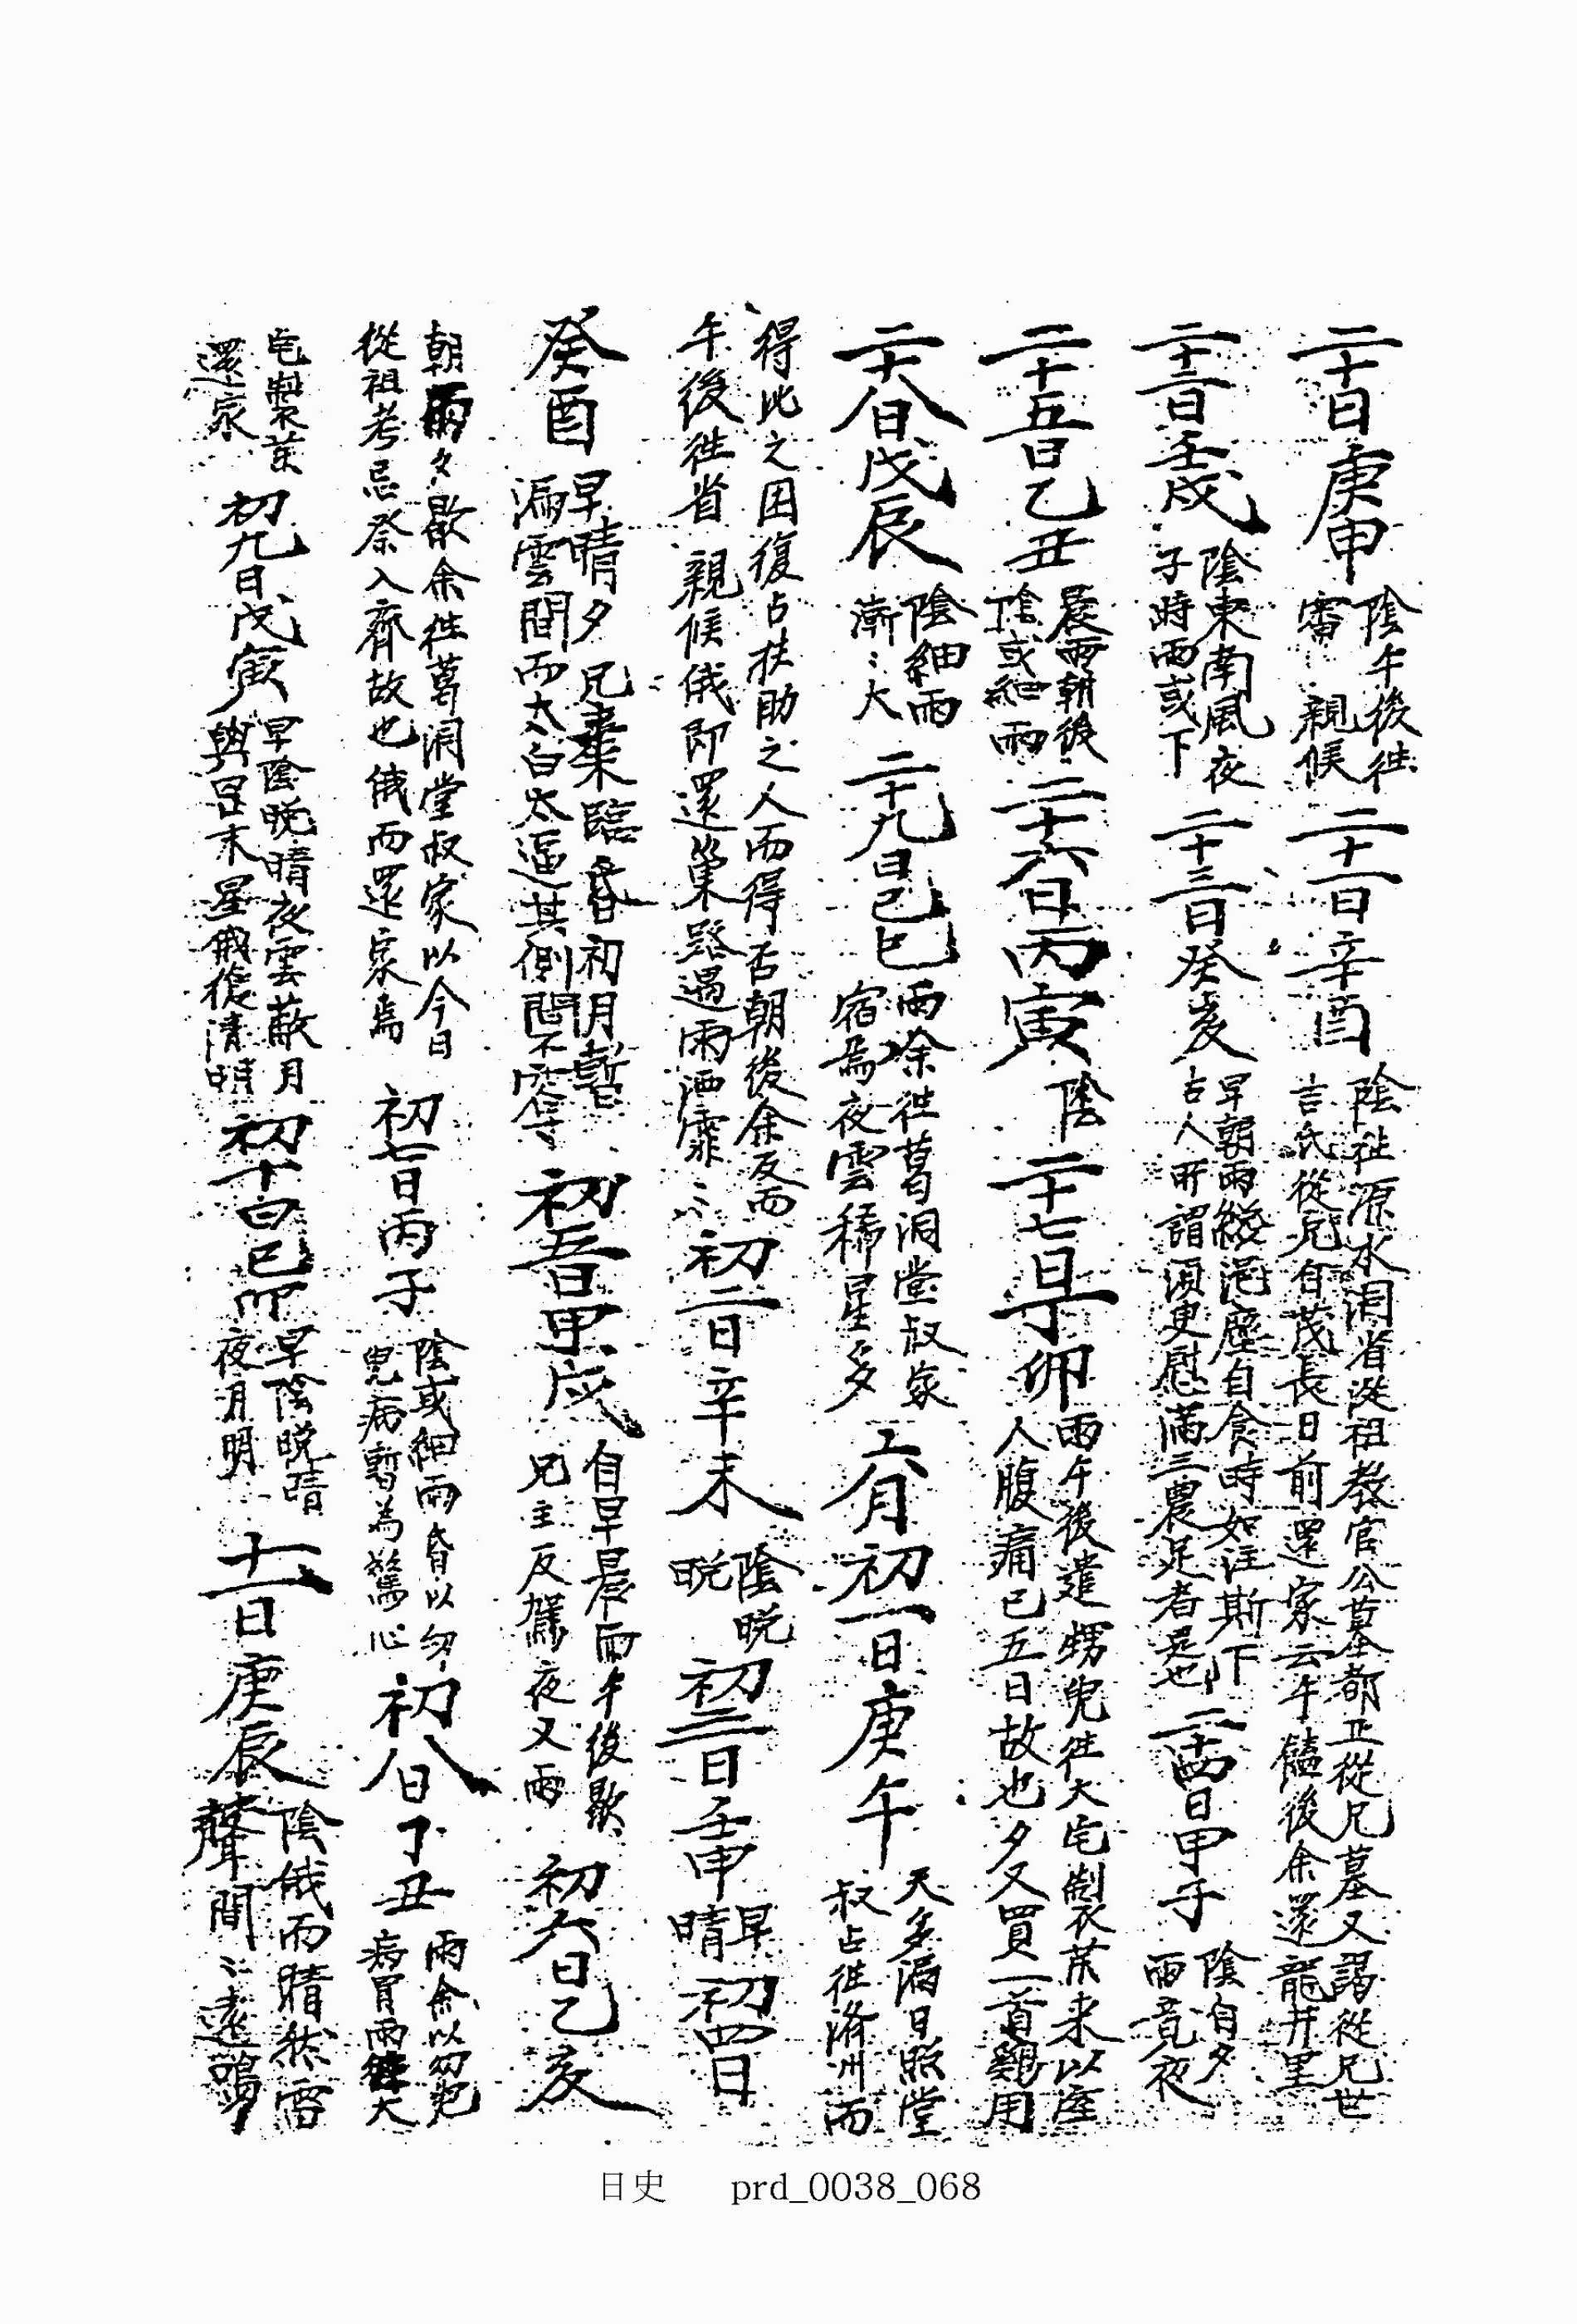 二十日庚申 陰午後往審 親候 二十一日辛酉 陰往源水洞省從祖教官公墓都正從兄墓又謁從兄世言氏從兄自茂長日前還家云午饁後余還龍井里
二十二日壬戌 陰東南風夜子時雨或下 二十三日癸亥 早朝雨纔浥塵自食時如注斯下古人所謂須更慰滿三農足者是也 二十四日甲子 陰自夕雨竟夜
二十五日乙丑 晨雨朝後陰或細雨 二十六日丙寅 陰 二十七日丁卯 雨午後遣甥兒往大宅製衣茶來以室人腹痛已五日故也夕又買一首鷄用
二十八日戊辰 陰細雨漸〻大 二十九日己巳 雨余往葛洞堂叔家宿焉夜雲稀星多 六月初一日庚午 天多漏日照堂叔占往濟州而
得此之困復占扶助之人而得否朝後余反而午後往省 親候俄即還巢路遇雨洒霏〻 初二日辛未 陰晩晩 初三日壬申 早晴 初四日
癸酉 早晴夕兄來臨昏初月暫漏雲間而太白太逼其側間不容寸 初五日甲戌 自早晨雨午後歇兄主反駕夜又雨 初六日乙亥
朝雨夕歇余往葛洞堂叔家以今日從祖考忌祭入齋故也俄而還家焉 初七日丙子 陰或細雨昏以幼兒病暫為驚心 初八日丁丑 雨余以幼兒病冒雨往大
宅製茶還家 初九日戊寅 早陰晩晴夜雲蔽月與昴末星俄後淸明 初十日己卯 早陰晩晴夜月明 十一日庚辰 陰俄而晴然雷聲間〻遠鳴
日史 prd_0038_068